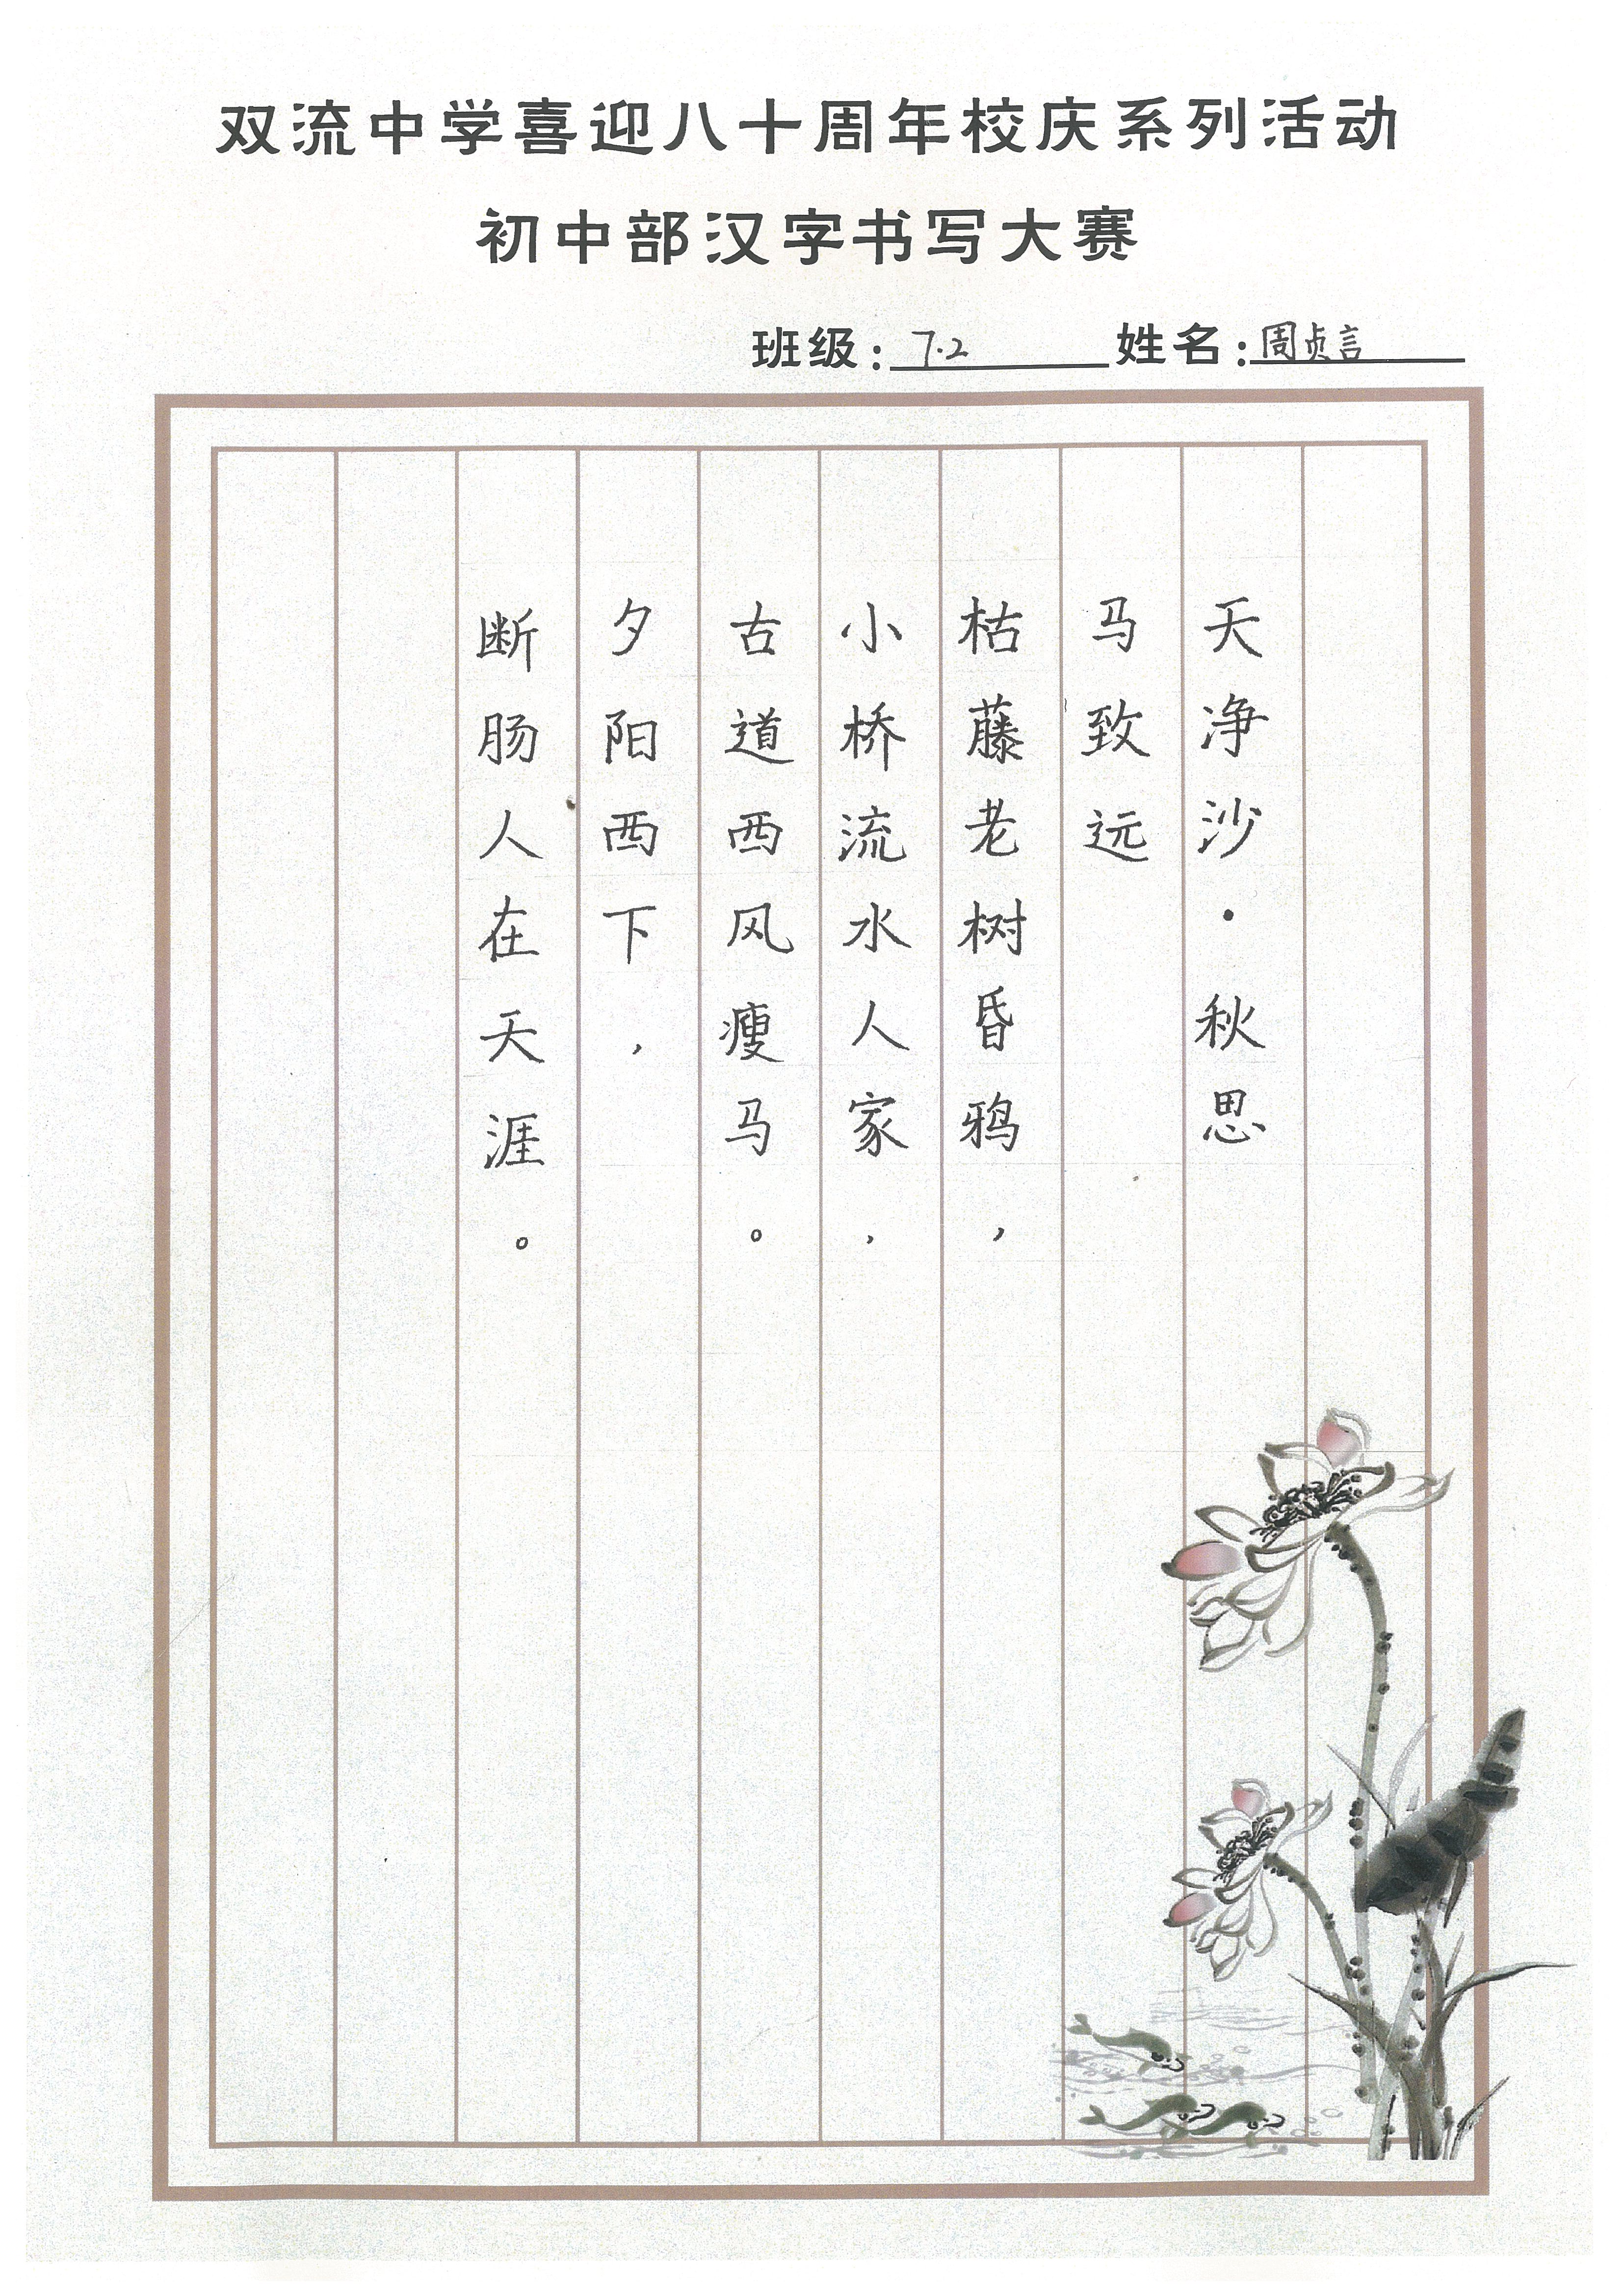 双流中学喜迎八十周年校庆系列活动
初中部汉字书写大赛
班级：7.2 姓名：周贞言
天净沙·秋思
马致远
枯藤老树昏鸦，
小桥流水人家，
古道西风瘦马。
夕阳西下，
断肠人在天涯。